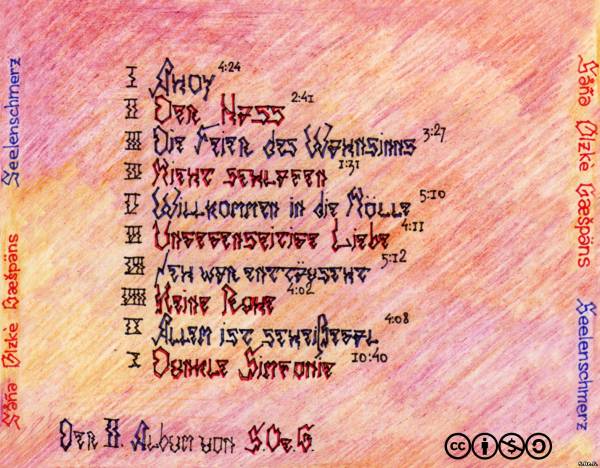 I Ahoy 4:24
II Der Hass 2:41
III Die Feier des Wahnsinns 3:27
IV Nicht schlafen 1:31
V Willkommen in die Hölle 5:10
VI Ungegenseitige Liebe 4:11
VII Ich war enttäuscht 5:12
VIII Keine Ruhe 4:02
IX Allem ist scheißegal 4:08
X Dunkle Simfonie 10:40
Der II. Album von S.Oe.G.
Seelenschmerz
Gæšpäns
Gæšpäns
Seelenschmerz
cc